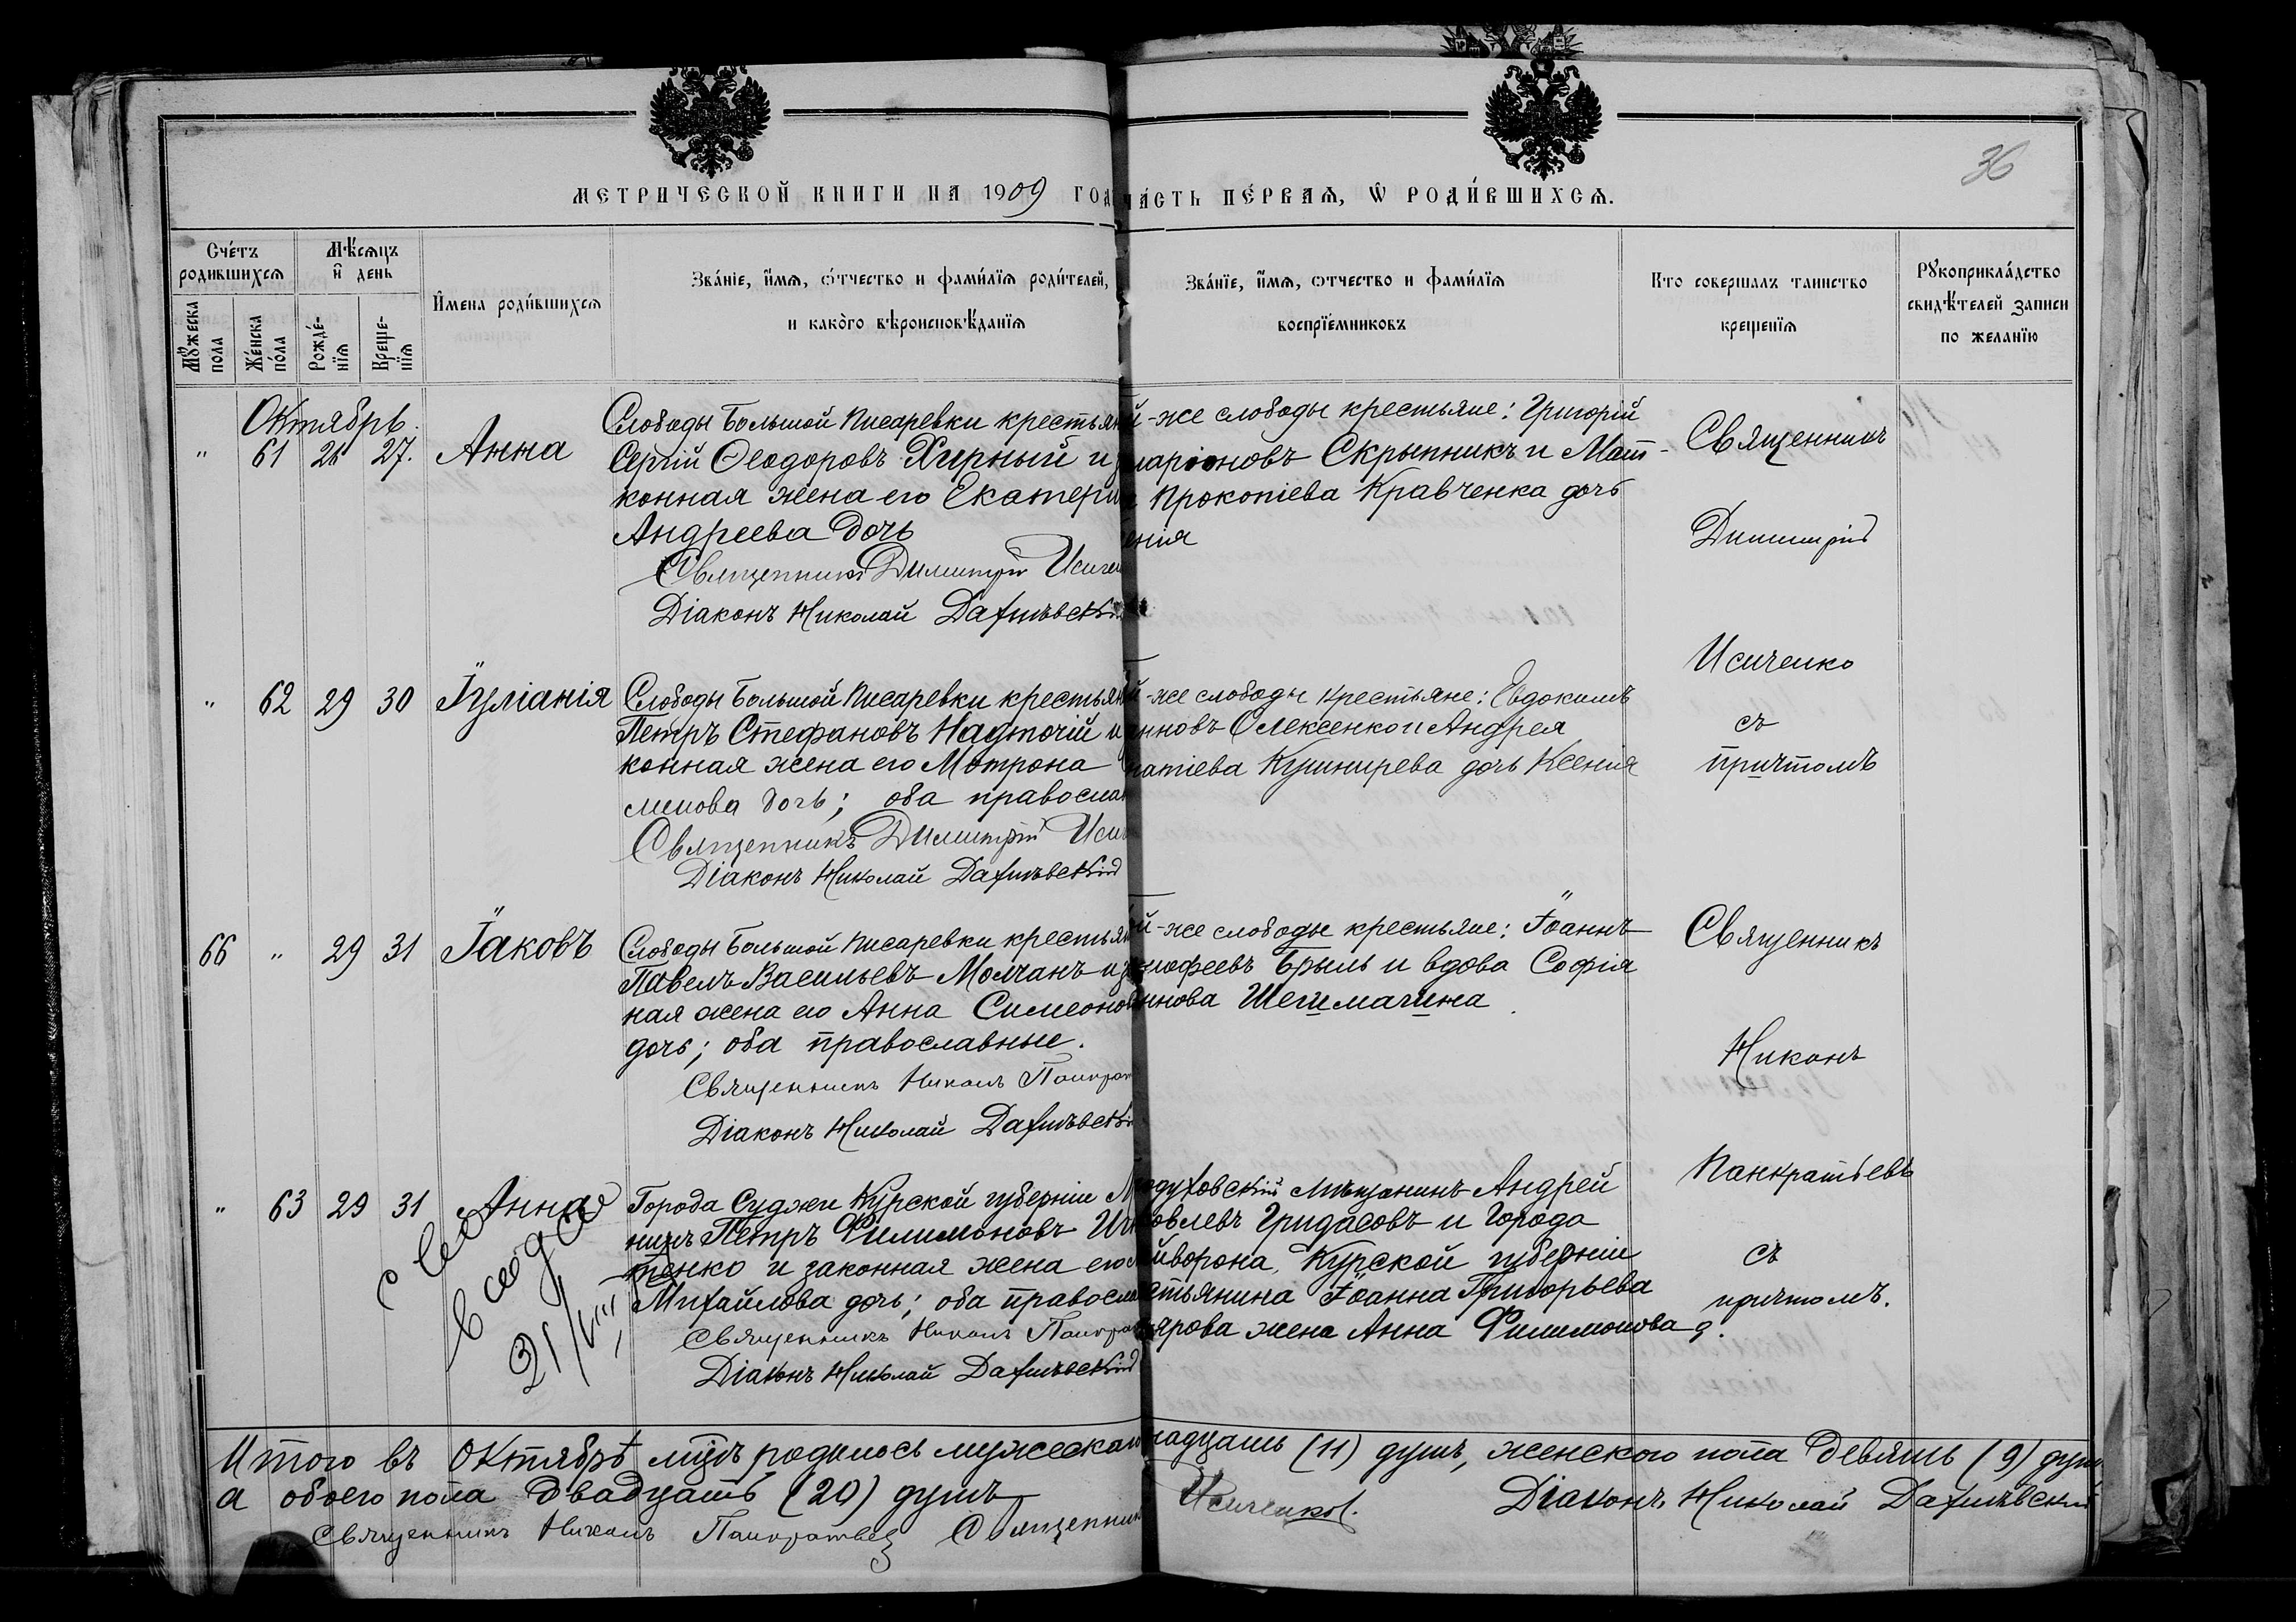 36
МЕТРИЧЕСКОЙ КНИГИ НА 1909 ГОД
ЧАСТЬ ПЕРВАЯ, Ѡ РОДИВШИХСЯ.
Счетъ родившихся
Мѣсяцъ и день
Имена родившихся
Званіе, имя, отчество и фамилія родителей,
и какого вѣроисповѣданія
Званіе, имя, отчество и фамилія
воспріемниковъ
Кто совершалъ таинство
крещенія
Рукоприкладство
свидѣтелей записи
по желанію
Мужеска пола
Женска пола
Рожденія
Крещенія
Октябрь.
" 61 26 27. Анна
Слободы Большой Писаревки крестьян
Сергій Ѳеодоровъ Хирный и з
конная жена его Екатери
Андреева дочь
Священникъ Димитрій Исичен
Діаконъ Николай
й-же слободы крестьяне: Григорій
ларіоновъ Скрыпникъ и Мат-
Прокопіева Кравченка дочь
енія
Священникъ
Димитрій
Исиченко
съ
причтомъ
" 62 29 30 Іуліанія
Слободы Большой Писаревки крестьян
Петръ Стефановъ Надточій и
конная жена его Мотрона
менова дочь; оба правосла
Священникъ Димитрій Исич
Діаконъ Николай
й-же слободы крестьяне: Евдокимъ
нновъ Олексенко и Андрея
натіева Кушнирева дочь Ксенія
66 " 29 31 Іаковъ
Слободы Большой Писаревки крестьян
Павелъ Васильевъ Молчанъ и з
ная жена его Анна Симеонов
дочь; оба православные.
Священникъ Никонъ Панкрат
Діаконъ Николай
й-же слободы крестьяне: Іоаннъ
моѳеевъ Брыль и вдова Софія
ннова
Священникъ
Никонъ
Панкратьевъ
съ
причтомъ.
" 63 29 31 Анна
21/VIII
Города Суджи Курской губерніи М
нинъ Петръ Филимоновъ
тенко и законная жена его
Михайлова дочь; оба правосла
Священникъ Никонъ Панкрат
Діаконъ Николай
одуховскій мѣщанинъ Андрей
ковлевъ Гридасовъ и Города
йворона, Курской губерніи
стьянина Іоанна Григорьева
ярова жена Анна Филимонова д.
Итого въ Октябрѣ мцѣ родилось мужескаго
надцать (11) душъ, женского пола девять (9) душ
а обоего пола двадцать (20) душъ
Священникъ Никонъ Панкратьевъ Священник
Исиченко.
Діаконъ Николай